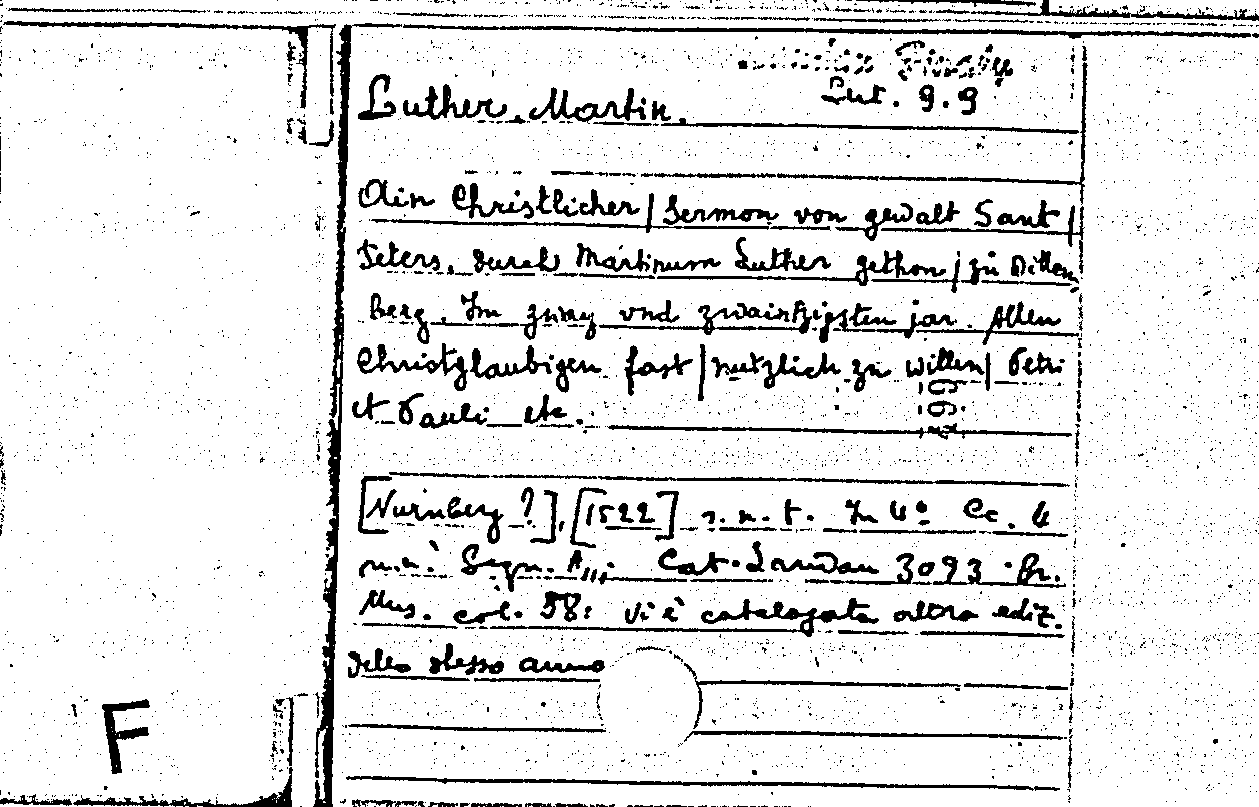 Lut. 9.9
Luther, Martin.
Ain Christlicher | Sermon von gewalt Sant |
Peters, durch Martinum Luther gethon | zu Witten
berg. Im zway vnd zwaintzigsten jar. Allen
Christglaubigen fast | nutzlich zu willen | Petri
et Pauli etc.
[Nürnberg ?], [1522] s. n. t. In 4° Cc. 4
n.n. Segn. Aiii. Cat. Landau 3093. Br.
Mus. col. 58: Vi è catalogata altra ediz.
dello stesso anno
F